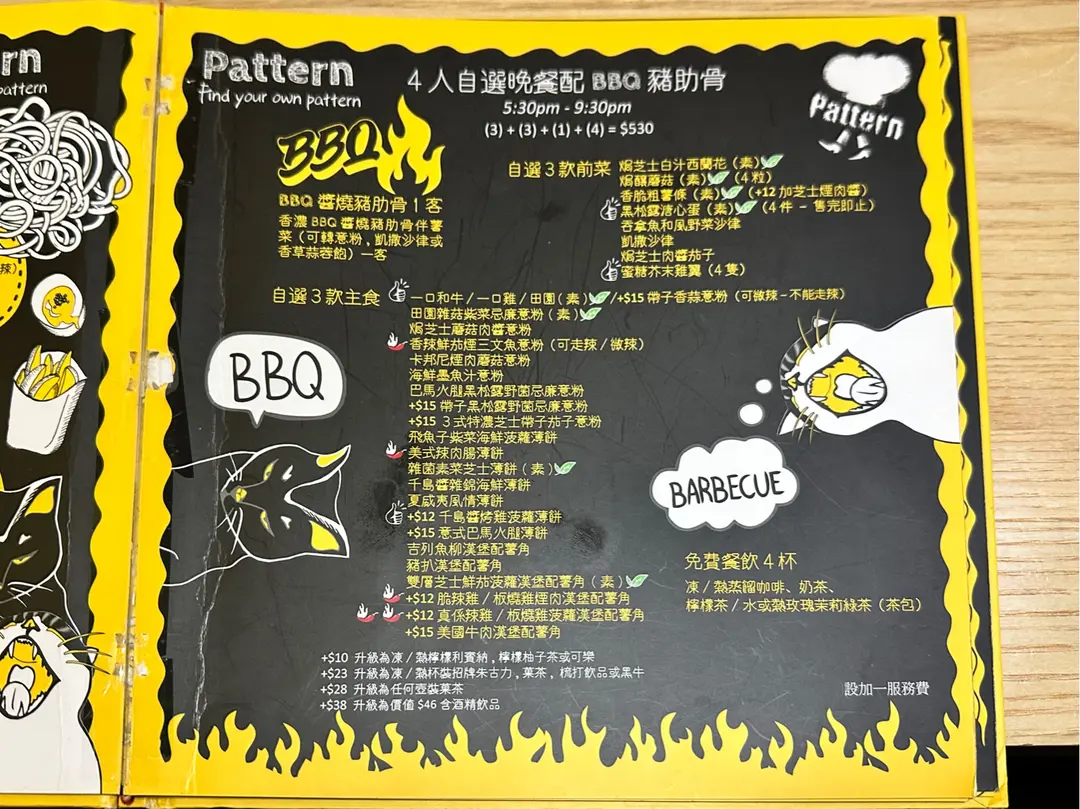 rn
pattern
辣)
Pattern
Find your own pattern
4人自選晚餐配 BBQ 豬助骨
5:30pm - 9:30pm
(3) + (3) + (1) + (4) = $530
Pattern
BBQ
BBQ 醬燒豬肋骨1客
香濃 BBQ 醬燒豬肋骨伴薯
菜（可轉意粉，凱撒沙律或
香草蒜蓉飽）一客
自選3款前菜
焗芝士白汁西蘭花（素）
焗釀蘑菇（素）（4粒）
香脆粗薯條（素）（+12 加芝士煙肉醬）
黑松露溏心蛋（素）（4件 - 售完即止）
吞拿魚和風野菜沙律
凱撒沙律
焗芝士肉醬茄子
蜜糖芥末雞翼（4隻）
自選3款主食
一口和牛/一口雞/田園(素)/+$15 帶子香蒜意粉（可微辣-不能走辣）
田園雜菇紫菜忌廉意粉（素）
焗芝士蘑菇肉醬意粉
香辣鮮茄煙三文魚意粉（可走辣/微辣）
卡邦尼煙肉蘑菇意粉
海鮮墨魚汁意粉
巴馬火腿黑松露野菌忌廉意粉
+$15 帶子黑松露野菌忌廉意粉
+$15 3式特濃芝士帶子茄子意粉
飛魚子紫菜海鮮菠蘿薄餅
美式辣肉腸薄餅
雜菌素菜芝士薄餅（素）
千島醬雜錦海鮮薄餅
夏威夷風情薄餅
+$12 千島醬烤雞菠蘿薄餅
+$15 意式巴馬火腿薄餅
吉列魚柳漢堡配薯角
豬扒漢堡配薯角
雙層芝士鮮茄菠蘿漢堡配薯角（素）
+$12 脆辣雞/板燒雞煙肉漢堡配薯角
+$12 真係辣雞/板燒雞菠蘿漢堡配薯角
+$15 美國牛肉漢堡配薯角
BBQ
BARBECUE
免費餐飲4杯
凍/熱蒸餾咖啡、奶茶、
檸檬茶/水或熱玫瑰茉莉綠茶（茶包）
+$10 升級為凍/熱檸檬利賓納，檸檬柚子茶或可樂
+$23 升級為凍/熱杯裝招牌朱古力，菓茶，梳打飲品或黑牛
+$28 升級為任何壺裝菓茶
+$38 升級為價值 $46 含酒精飲品
設加一服務費